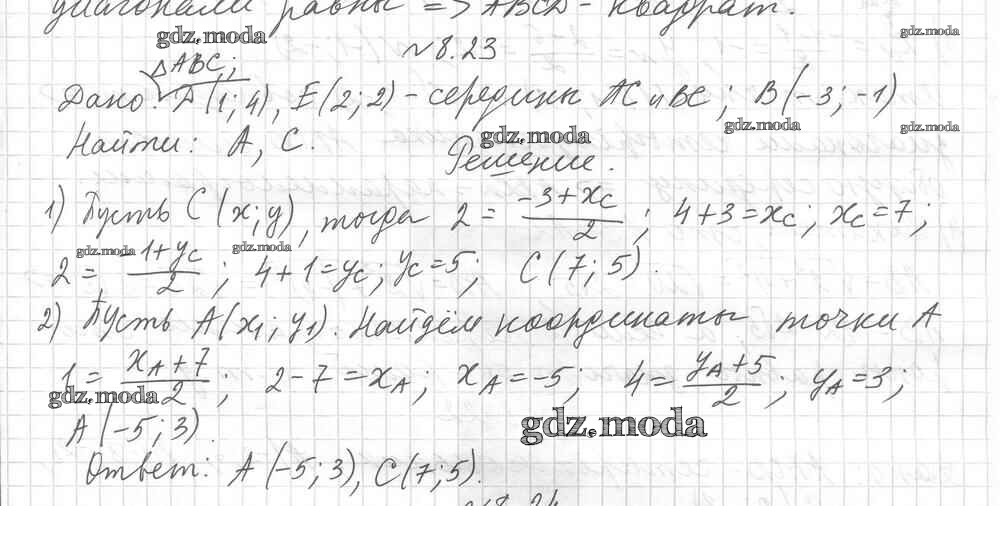 диагонали равны => ABCD - квадрат.
gdz.moda
№8.23
gdz.moda
△ABC;
Дано: P(1; 4), E(2; 2) - середины AC и BC; B(-3; -1)
gdz.moda
gdz.moda
gdz.moda
Найти: A, C.
Решение.
1) Пусть C(x; y), тогда 2 = \frac{-3+x_C}{2}; 4+3=x_C; x_C=7;
gdz.moda
gdz.moda
2 = \frac{-1+y_C}{2}; 4+1=y_C; y_C=5; C(7; 5).
2) Пусть A(x_1; y_1). Найдём координаты точки A
1 = \frac{x_A+7}{2}; 2-7=x_A; x_A=-5; 4=\frac{y_A+5}{2}; y_A=3;
gdz.moda
gdz.moda
A(-5; 3).
Ответ: A(-5; 3), C(7; 5).